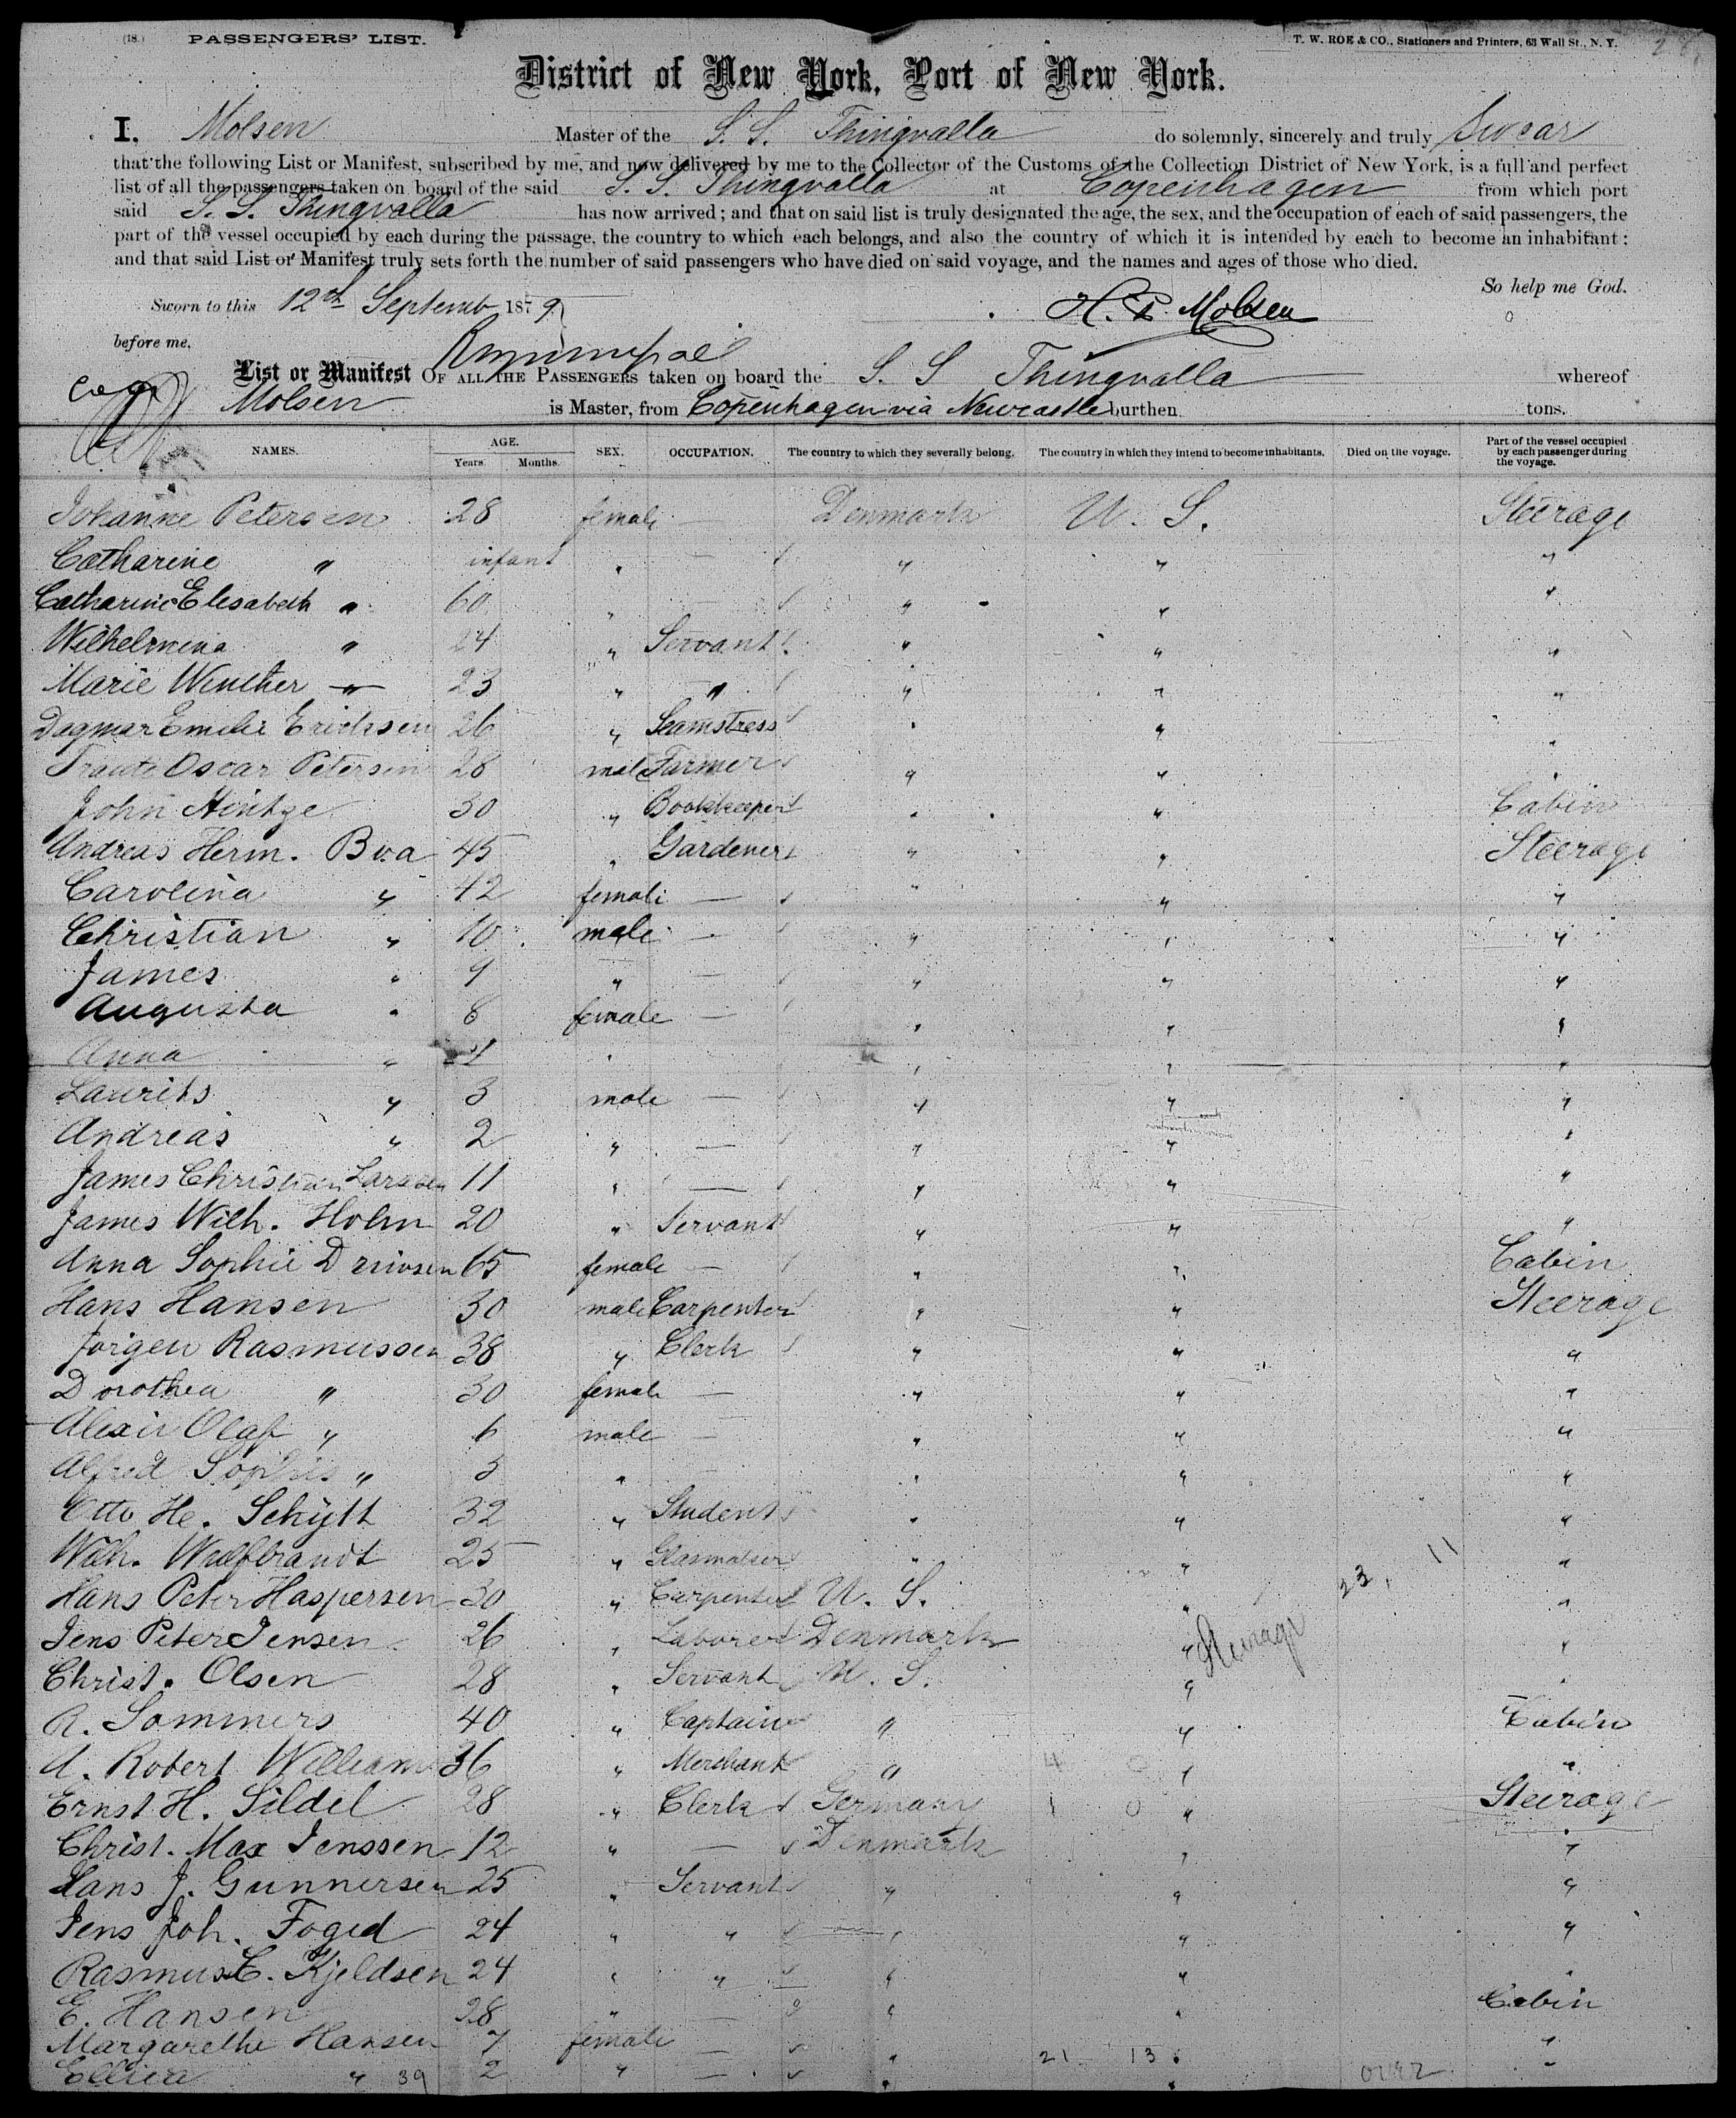 (18.) PASSENGERS' LIST. T. W. ROE & CO., Stationers and Printers, 63 Wall St., N. Y.
District of New York, Port of New York.
I, Molsen Master of the S. S. Thingvalla do solemnly, sincerely and truly swear
that the following List or Manifest, subscribed by me, and now delivered by me to the Collector of the Customs of the Collection District of New York, is a full and perfect
list of all the passengers taken on board of the said S. S. Thingvalla at Copenhagen from which port
said S. S. Thingvalla has now arrived; and that on said list is truly designated the age, the sex, and the occupation of each of said passengers, the
part of the vessel occupied by each during the passage, the country to which each belongs, and also the country of which it is intended by each to become an inhabitant;
and that said List or Manifest truly sets forth the number of said passengers who have died on said voyage, and the names and ages of those who died.
So help me God.
Sworn to this 12th Septemb 1879 H. P. Molsen
before me,
List or Manifest OF ALL THE PASSENGERS taken on board the S. S Thingvalla whereof
Molsen is Master, from Copenhagen via Newcastle burthen tons.
NAMES. AGE. Years. Months. SEX. OCCUPATION. The country to which they severally belong. The country in which they intend to become inhabitants. Died on the voyage. Part of the vessel occupied by each passenger during the voyage.
Johanne Petersen 28 female — Denmark U. S. Steerage
Catharine " infant " — " " "
Catharine Elisabeth " 60 " " " "
Wilhelmina " 24 " Servant " " "
Marie Winther " 23 " " " " "
Dagmar Emilie Ericksen 26 " Seamstress " " "
Oscar Petersen 28 male Farmer " " "
John Hintze 30 " Bookkeeper " " Cabin
Andreas Herm. Boa 45 " Gardener " " Steerage
Carolina " 42 female — " " "
Christian " 10 male — " " "
James " 9 " — " " "
Augusta " 8 female — " " "
Anna " 4 " " " "
Laurits " 3 male — " " "
Andreas " 2 " — " " "
James Christian Larssen 11 " — " " "
James Wilh. Holm 20 " Servant " " "
Anna Sophie 65 female — " " Cabin
Hans Hansen 30 male Carpenter " " Steerage
Jörgen Rasmussen 38 " Clerk " " "
Dorothea " 30 female — " " "
Olaf " 6 male — " " "
Alfred Sophus " 3 " — " " "
Otto He. Schytt 32 " Student " " "
Wilh. Wulfbrandt 25 " " " "
Hans Peter Haspersen 30 " Carpenter U. S. " 23 11 "
Jens Peter Jensen 26 " Laborer Denmark " Steerage "
Christ. Olsen 28 " Servant U. S. " "
R. Sommers 40 " Captain " " Cabin
A. Robert William 36 " Merchant " 4 0 " "
Ernst H. Sildel 28 " Clerk Germany 1 0 " Steerage
Christ. Max Jenssen 12 " — Denmark " "
Hans J. Gunnersen 25 " Servant " " "
Jens Joh. Foged 24 " " " " "
Rasmus C. Kjeldsen 24 " " " " "
E. Hansen 28 " — " " Cabin
Margarethe Hansen 7 female — " 21 13 " "
" 39 2 " — " " over "